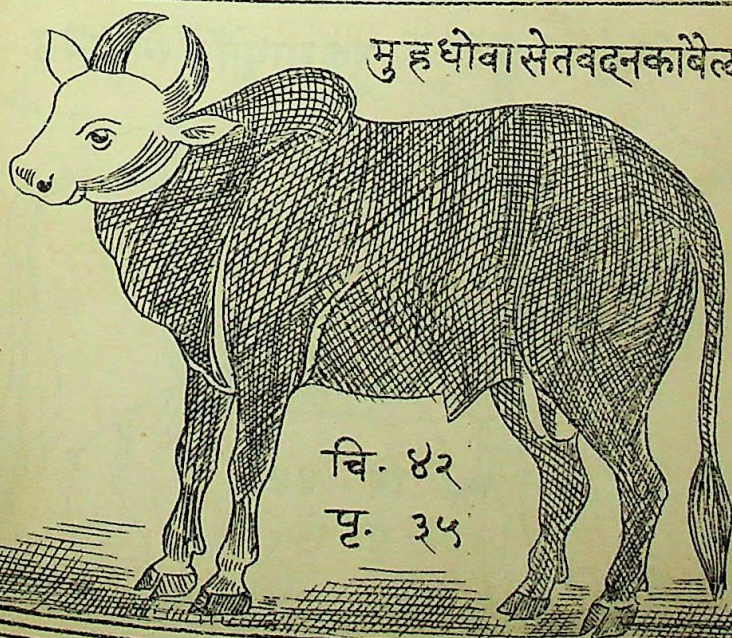 मुहधोवासेतवदनकोबैल
चि. ४२
पृ. ३५